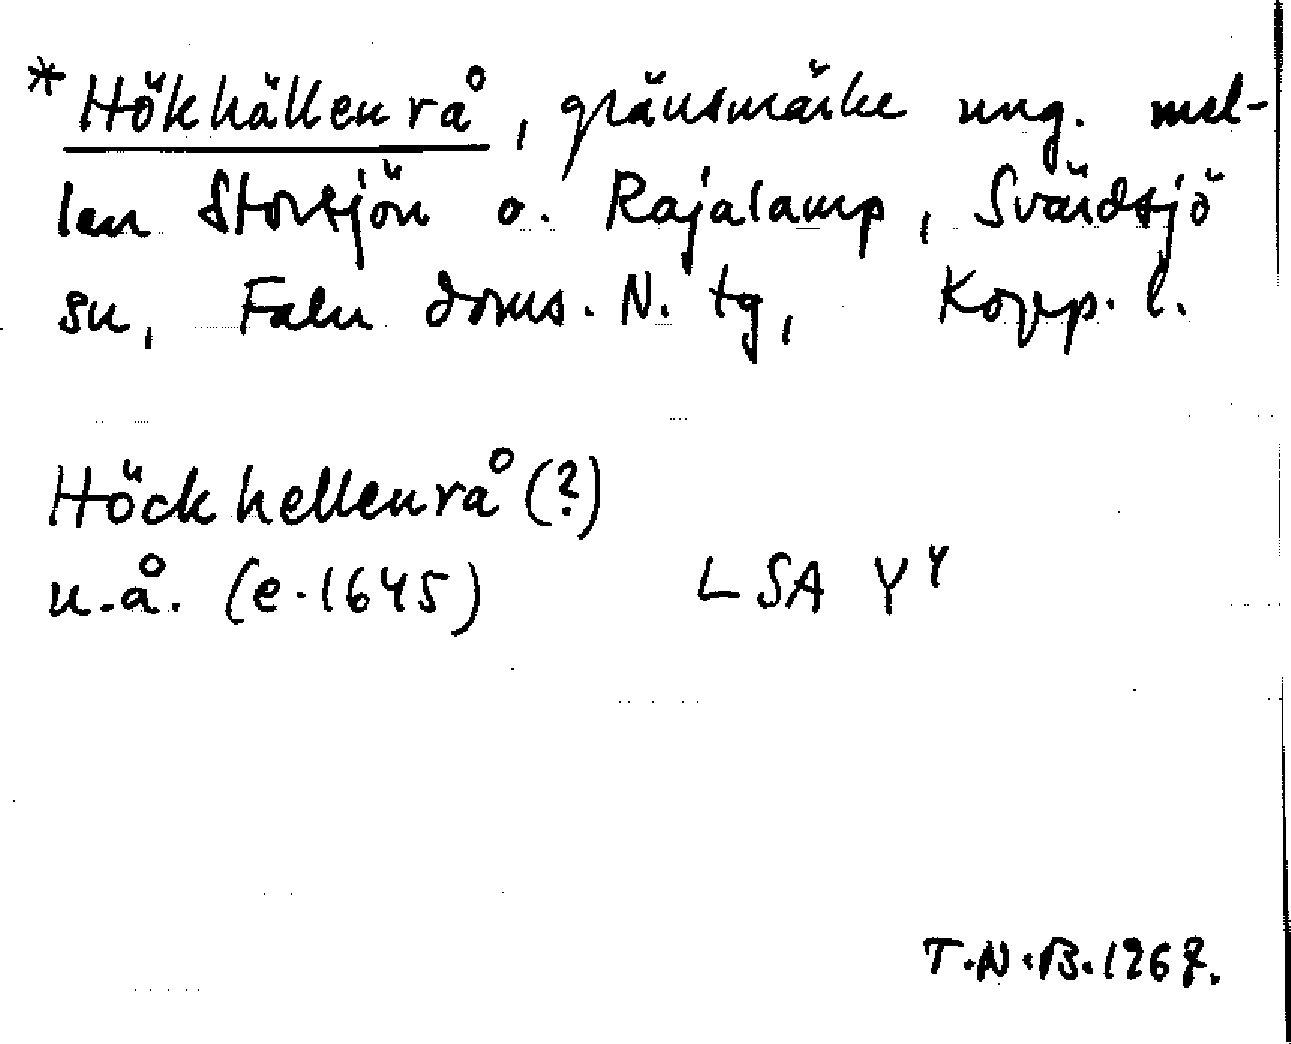 *Hökhällenrå, gränsmärke ung. mel-
lan Storsjön o. Rajalamp, Svärdsjö
sn, Falu doms. N. tg, Kopp. l.
Höckhellenrå (?)
u.å. (e. 1645) LSA Y⁴
T.N.B. 1967.